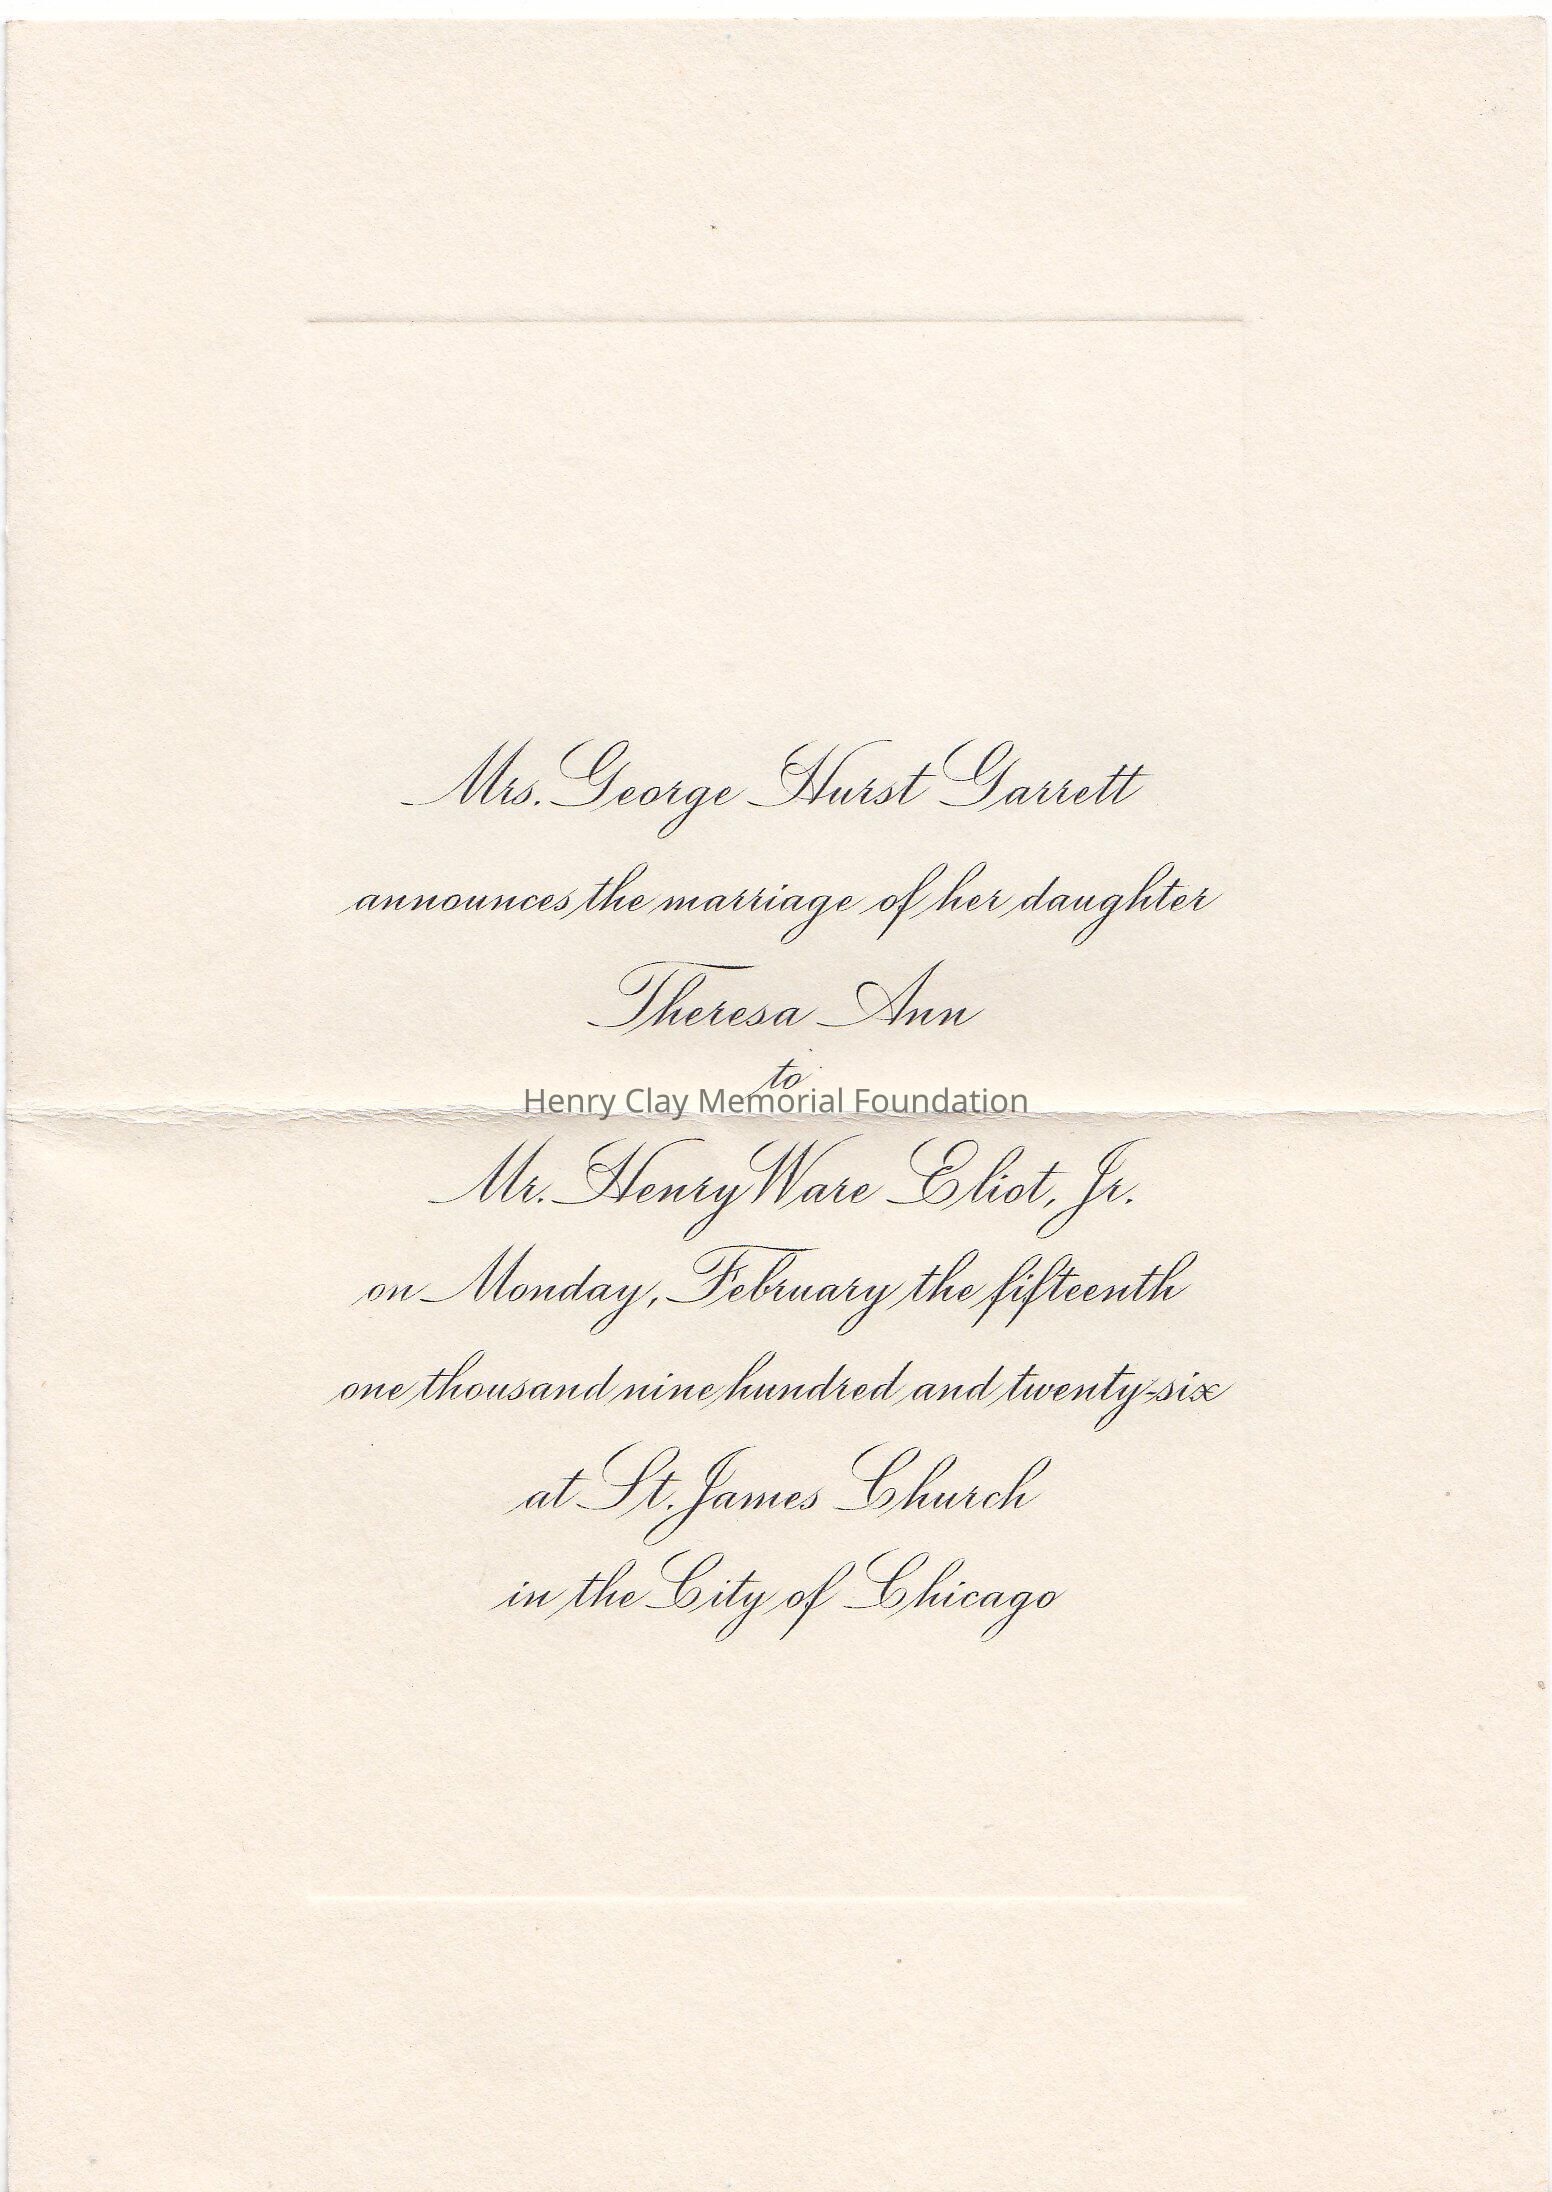 Mrs. George Hurst Garrett
announces the marriage of her daughter
Theresa Ann
to
Henry Clay Memorial Foundation
Mr. Henry Ware Eliot, Jr.
on Monday, February the fifteenth
one thousand nine hundred and twenty-six
at St. James Church
in the City of Chicago